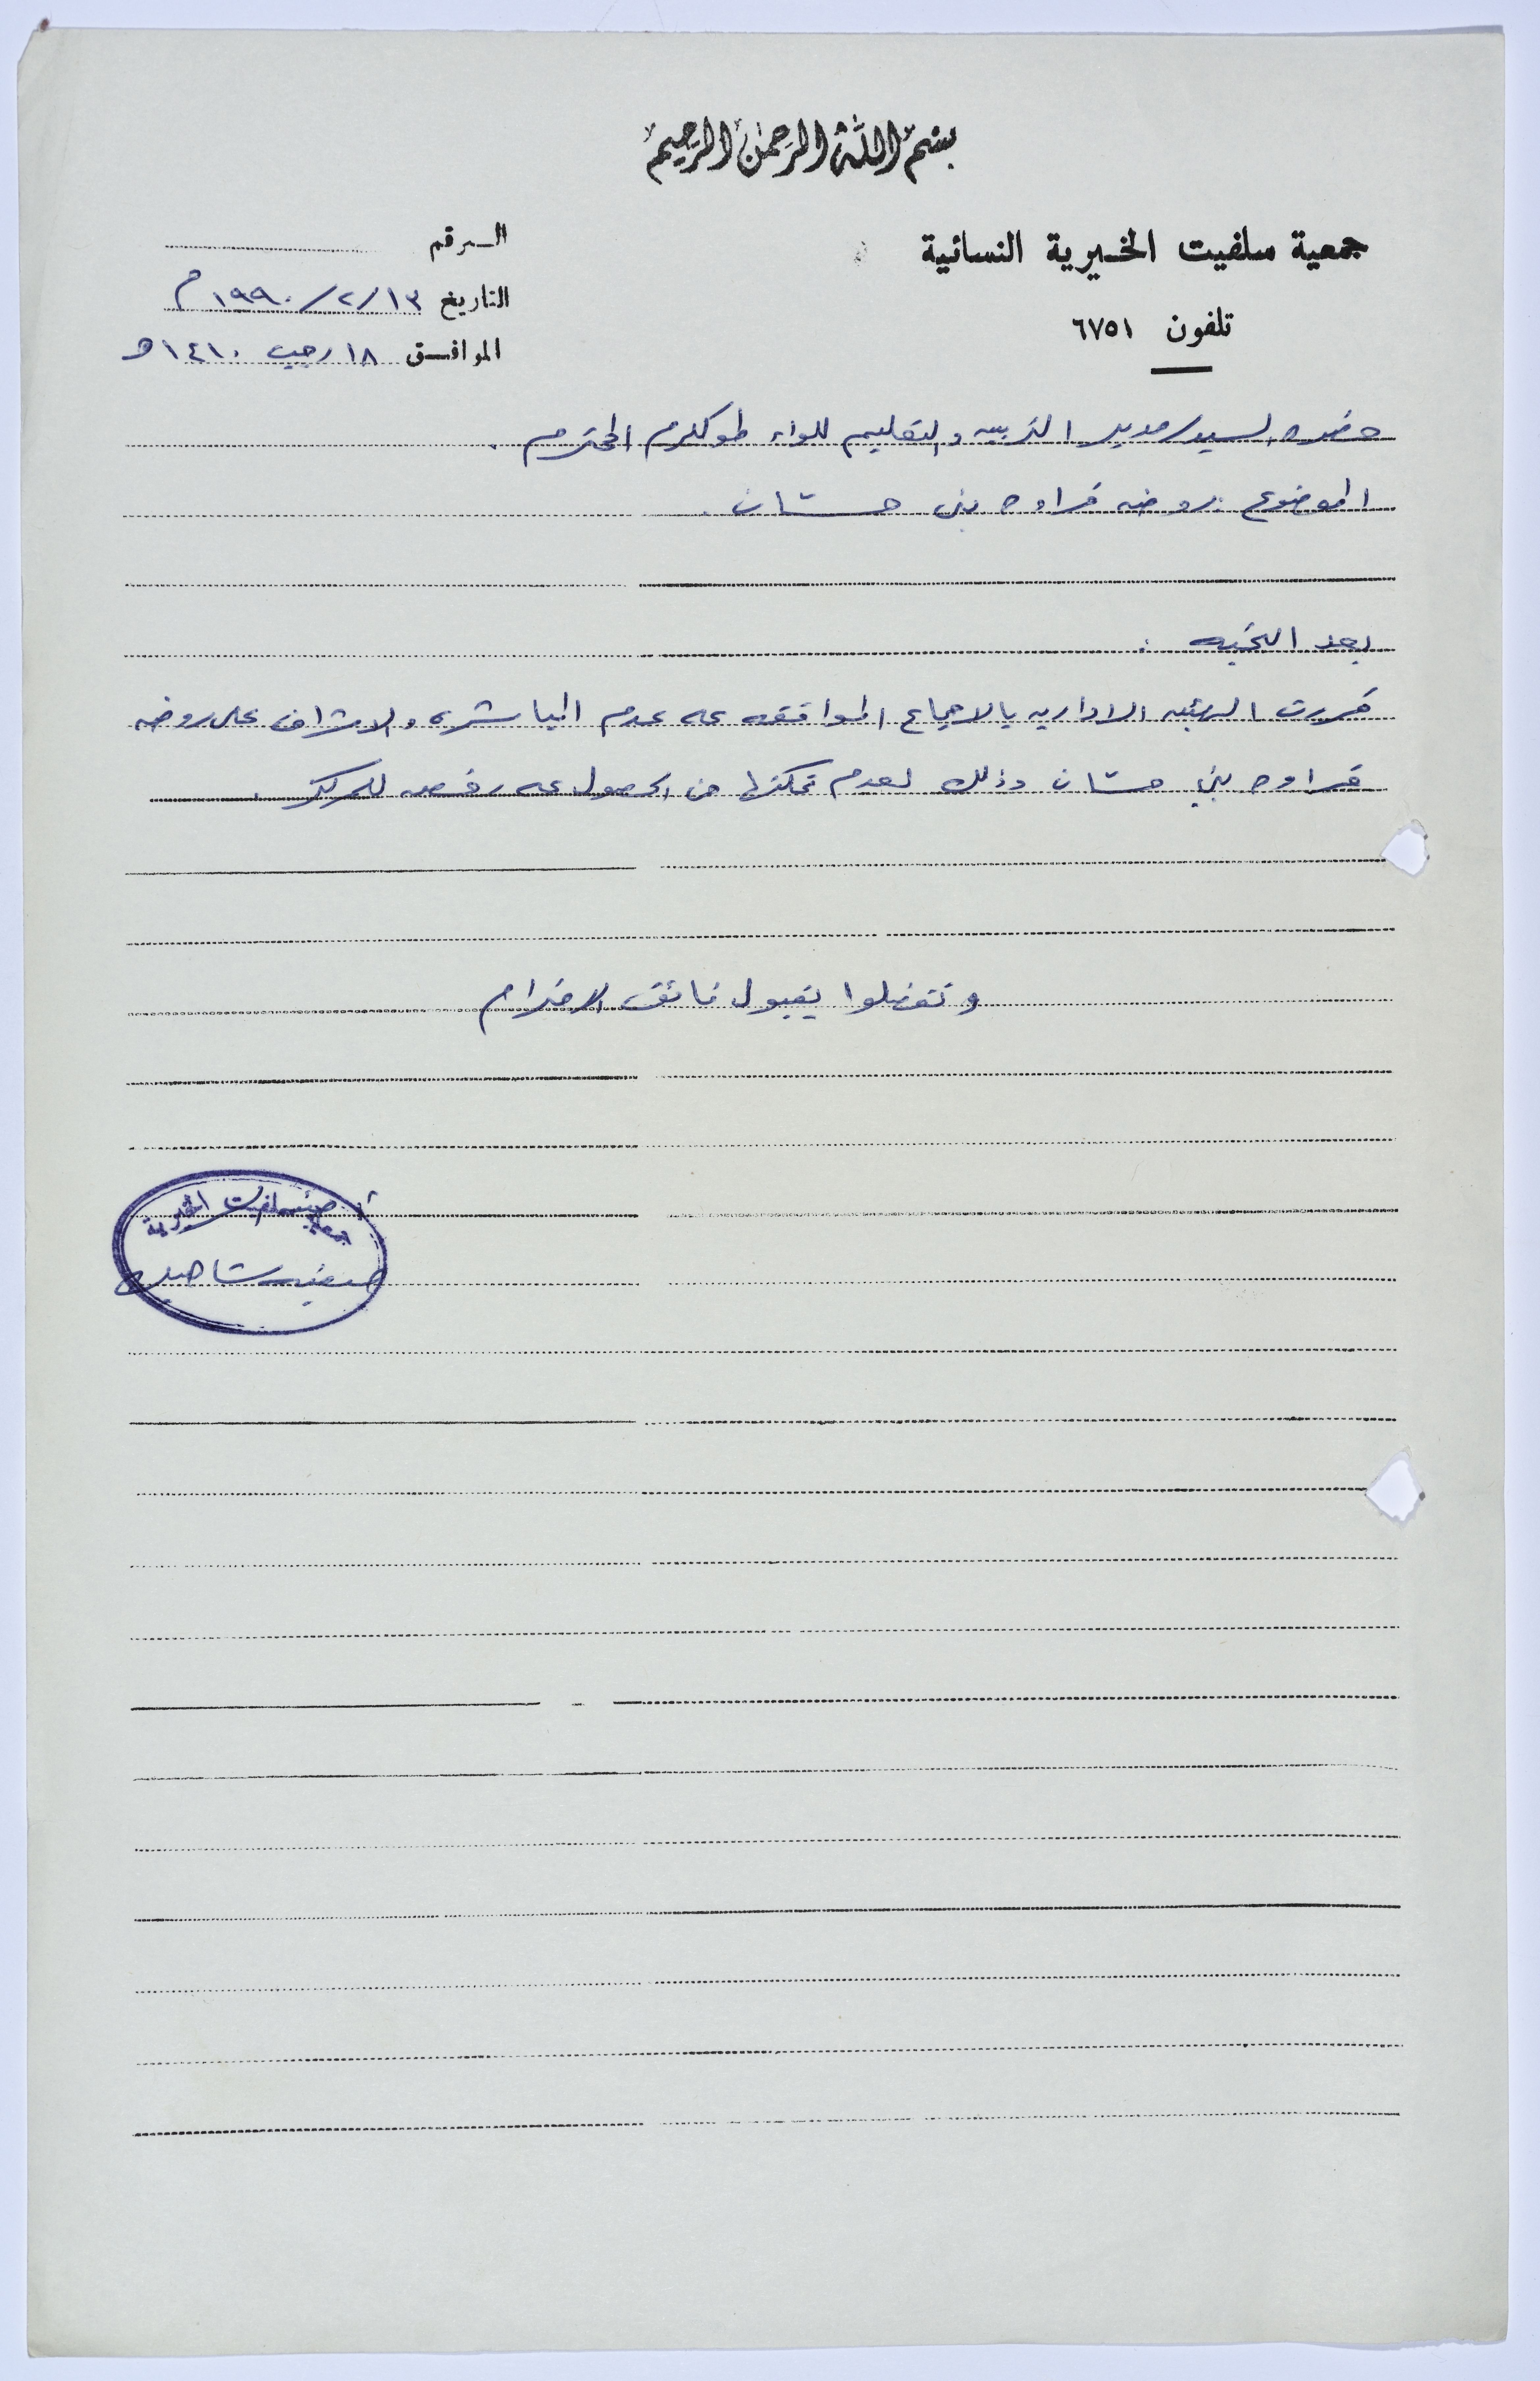 بسم الله الرحمن الرحيم
جمعية سلفيت الخيرية النسائية
تلفون ٦٧٥١
الرقم
التاريخ ١٣/٢/١٩٩٠م
الموافق ١٨ رجب ١٤١٠هـ
حضرة السيد مدير التربيه والتعليم للواء طولكرم المحترم .
الموضوع : روضه قراوه بني حسان .
بعد التحيه :
قررت الهيئه الاداريه بالاجماع الموافقه على عدم المباشره والاشراف على روضه
قراوه بني حسان وذلك لعدم تمكنها من الحصول على رخصه للمركز .
وتفضلوا بقبول فائق الاحترام
جمعية سلفيت الخيرية